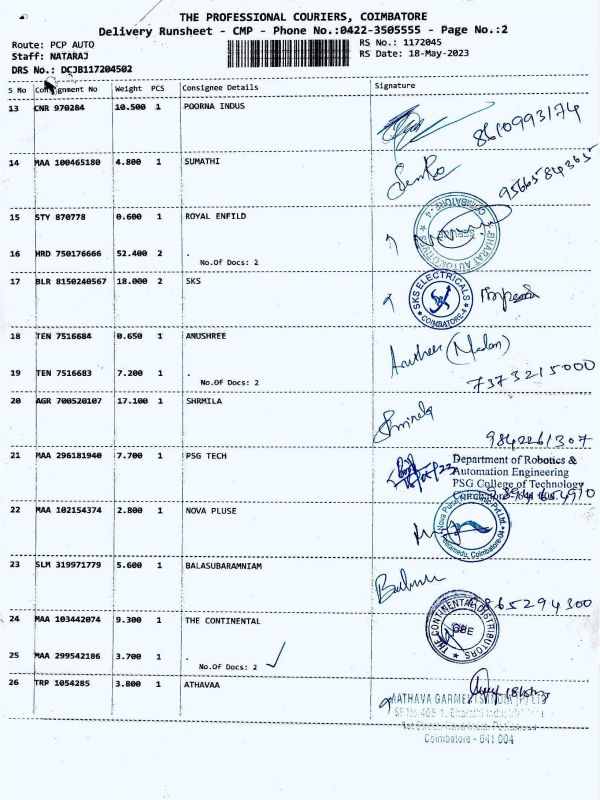 THE PROFESSIONAL COURIERS, COIMBATORE
Delivery Runsheet - CMP - Phone No.:0422-3505555 - Page No.:2
Route: PCP AUTO
RS No.: 1172045
Staff: NATARAJ
RS Date: 18-May-2023
DRS No.: DCJB117204502
S No Consignment No Weight PCS Consignee Details Signature
13 CNR 970284 10.500 1 POORNA INDUS
8610993174
14 MAA 100465180 4.800 1 SUMATHI
9566584365
15 STY 870778 0.600 1 ROYAL ENFILD
16 HRD 750176666 52.400 2 .
No.Of Docs: 2
BHARAT AUTOMOTIVES
COIMBATORE - 4
17 BLR 8150240567 18.000 2 SKS
SKS ELECTRICALS
COIMBATORE-4
18 TEN 7516684 0.650 1 ANUSHREE
Anushree (Madan)
19 TEN 7516683 7.200 1 .
No.Of Docs: 2
7373215000
20 AGR 700520107 17.100 1 SHRMILA
Shrmila
9842261307
21 MAA 296181940 7.700 1 PSG TECH
Department of Robotics &
Automation Engineering
PSG College of Technology
22 MAA 102154374 2.800 1 NOVA PLUSE
Coimbatore-04
23 SLM 319971779 5.600 1 BALASUBARAMNIAM
865294300
24 MAA 103442074 9.300 1 THE CONTINENTAL
THE CONTINENTAL DISTRIBUTORS
CBE
25 MAA 299542186 3.700 1 .
No.Of Docs: 2
26 TRP 1054285 3.800 1 ATHAVAA
AATHAVA GARMENTS INDIA (P) LTD
Coimbatore - 641 004